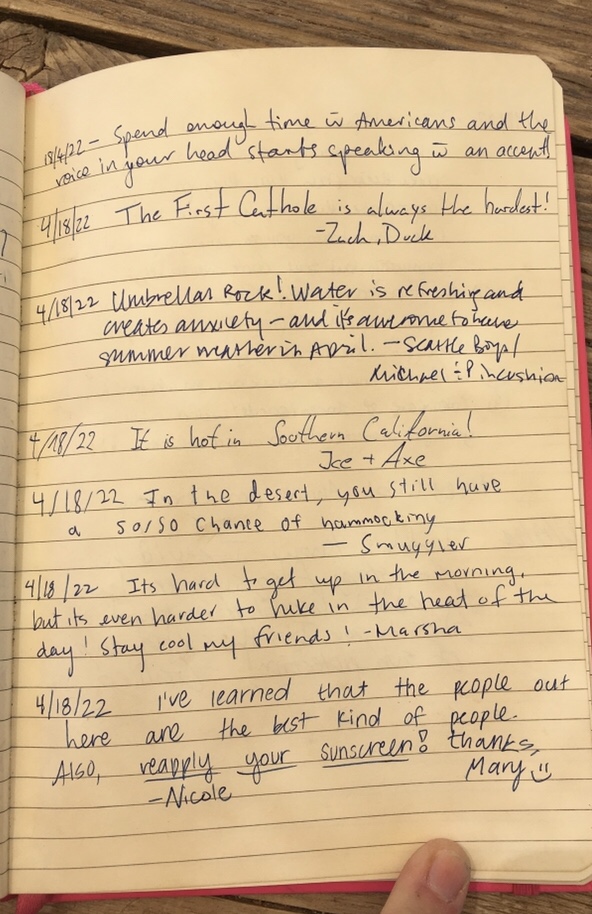 18/4/22 - Spend enough time w̄ Americans and the
voice in your head starts speaking w̄ an accent
4/18/22 The First Cathole is always the hardest!
-Zach, Duck
4/18/22 Umbrellas Rock! Water is refreshing and
creates anxiety - and its awesome to have
summer weather in April. - Seattle Boys/
Michael + Pincushion
4/18/22 It is hot in Southern California!
Ice + Axe
4/18/22 In the desert, you still have
a 50/50 chance of hammocking
- Smuggler
4/18/22 Its hard to get up in the morning,
but its even harder to hike in the heat of the
day! Stay cool my friends! -Marsha
4/18/22 I've learned that the people out
here are the best kind of people.
Also, reapply your sunscreen! thanks,
Mary
-Nicole